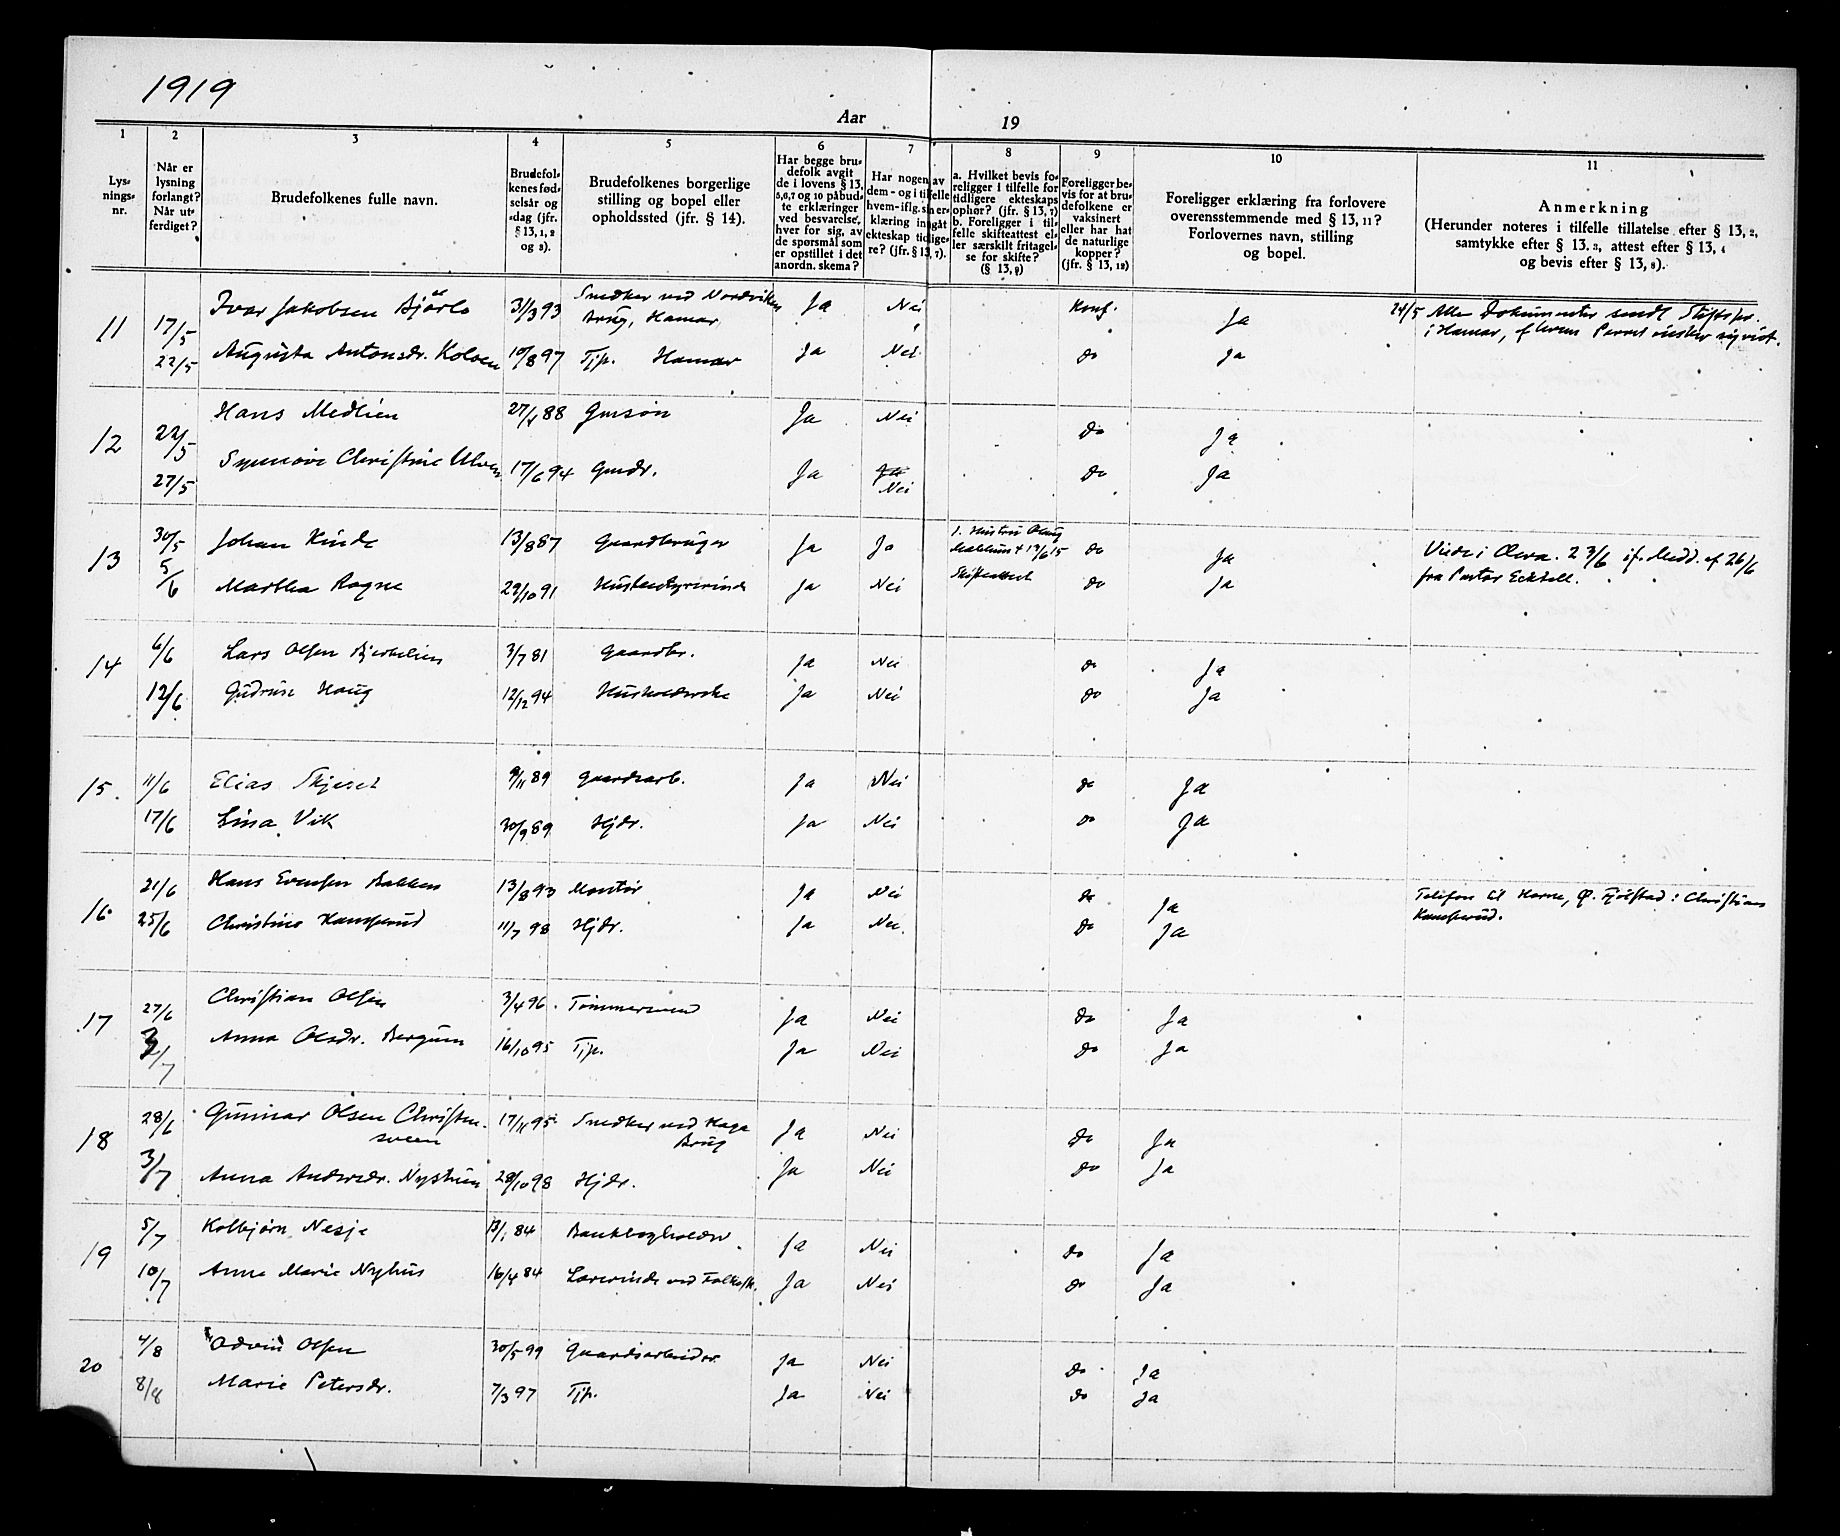 1919
Aar 19
1 2 3 4 5 6 7 8 9 10 11
Lys-
nings-
nr.
Når er
lysning
forlangt?
Når ut-
ferdiget?
Brudefolkenes fulle navn.
Brudefol-
kenes fød-
selsår og
-dag (jfr.
§ 13, 1, 2
og 3).
Brudefolkenes borgerlige
stilling og bopel eller
opholdssted (jfr. § 14).
Har begge bru-
defolk avgit
de i lovens § 13,
5,6,7 og 10 påbud-
te erklæringer
ved besvarelse,
hver for sig, av
de spørsmål som
er opstillet i det
anordn. skema?
Har nogen av
dem - og i tilfelle
hvem - iflg. sin er-
klæring ingåt
ekteskap tidlige-
re? (jfr. § 13, 7).
a. Hvilket bevis fo-
religger i tilfelle for
tidligere ekteskaps
ophør? (jfr. § 13, 7)
b. Foreligger i til-
felle skifteattest el-
ler særskilt fritagel-
se for skifte?
(§ 13, 9)
Foreligger be-
vis for at bru-
defolkene er
vaksinert
eller har hat
de naturlige
kopper?
(jfr. § 13, 12)
Foreligger erklæring fra forlovere
overensstemmende med § 13, 11?
Forlovernes navn, stilling
og bopel.
Anmerkning
(Herunder noteres i tilfelle tillatelse efter § 13, 2,
samtykke efter § 13, 3, attest efter § 13, 4
og bevis efter § 13, 8).
11 17/5 Ivar Jakobsen 3/3 93 Snedker ved Nordviken Ja Nei Konf. Ja 24/5 Alle Dokumenter sendt
brug, Hamar i Hamar,
22/5 Augusta Antonsdr. Kolven 10/8 97 Tjp. Hamar Ja Nei do Ja
12 22/5 Hans Medlien 88 Gmsøn Ja Nei Do Ja
27/5 Synnøve Christine Ulven 17/6 94 Gmdr. Ja Ja Do Ja
Nei
13 30/5 Johan Kinde 13/8 87 Gaardbruger Ja Ja 1. Hustru do Ja Viede i 23/6 if. Medd. af 26/6
fra Pastor
5/6 Martha Rogne 22/10 91 Husbestyrerinde Ja Nei Skifteattest do Ja
14 6/6 Lars Olsen 3/7 81 Gaardbr. Ja Nei do Ja
12/6 Gudrun Haug 12/12 94 Husholderske Ja Nei do Ja
15. 11/6 Elias Skjeset 9/11 89 Gaardsarb. Ja Nei do Ja
17/6 Lina Vik 30/9 89 Hjdr. Ja Nei do Ja
16 21/6 Hans Evensen Bakken 13/8 93 Montør Ja Nei do Ja Telefon til
25/6 Christine 11/7 98 Hjdr. Ja Nei. Do Ja
17 27/6 Christian Olsen 3/4 96. Tømmersvend Ja Nei Do Ja
2/7 Anna Olsdr. Bergum 16/10 95 Tjp. Ja Nei Do Ja
18 28/6 Gunnar Olsen Christen- 17/11 95 Snedker ved Haga Ja Nei Do Ja
sveen Brug
3/7 Anna Andersdr. Nystuen 28/10 98 Hjdr. Ja Nei Do Ja
19 5/7 Kolbjørn Nesje 13/1 84 Bankbogholder Ja Nei Do Ja
10/7 Anna Marie Nyhus 16/4 84 Lærerinde ved Folkesk. Ja Nei Do Ja
20 4/8 Odvin Olsen 30/5 99 Gaardsarbeider Ja Nei Do Ja
8/8 Marie Petersdr. 7/3 97 Tjp. Ja Nei do Ja